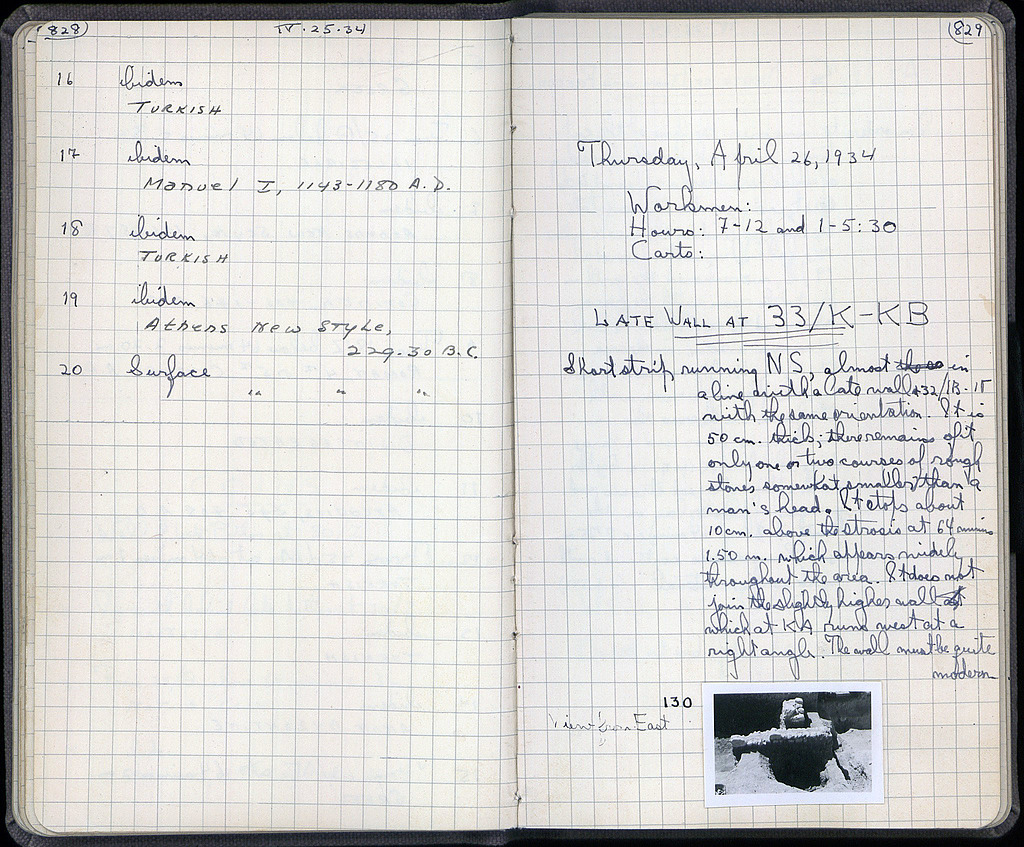 828
IV·25·34
16 ibidem
TURKISH
17 ibidem
Manuel I, 1143-1180 A.D.
18 ibidem
TURKISH
19 ibidem
Athens New Style,
229-30 B.C.
20 Surface
" " "
829
Thursday, April 26, 1934
Workmen:
Hours: 7-12 and 1-5:30
Carts:
LATE WALL AT 33/K-KB
Short strip running NS, almost in
a line with a late wall
with the same orientation. It is
50 cm. thick; there remains of it
only one or two courses of rough
stones somewhat smaller than a
man's head. It stops about
10 cm. above the strosis at 64 minus
1.50 m. which appears widely
throughout the area. It does not
join the slightly higher wall
which at KA runs west at a
right angle. The wall must be quite
modern
130
View from East